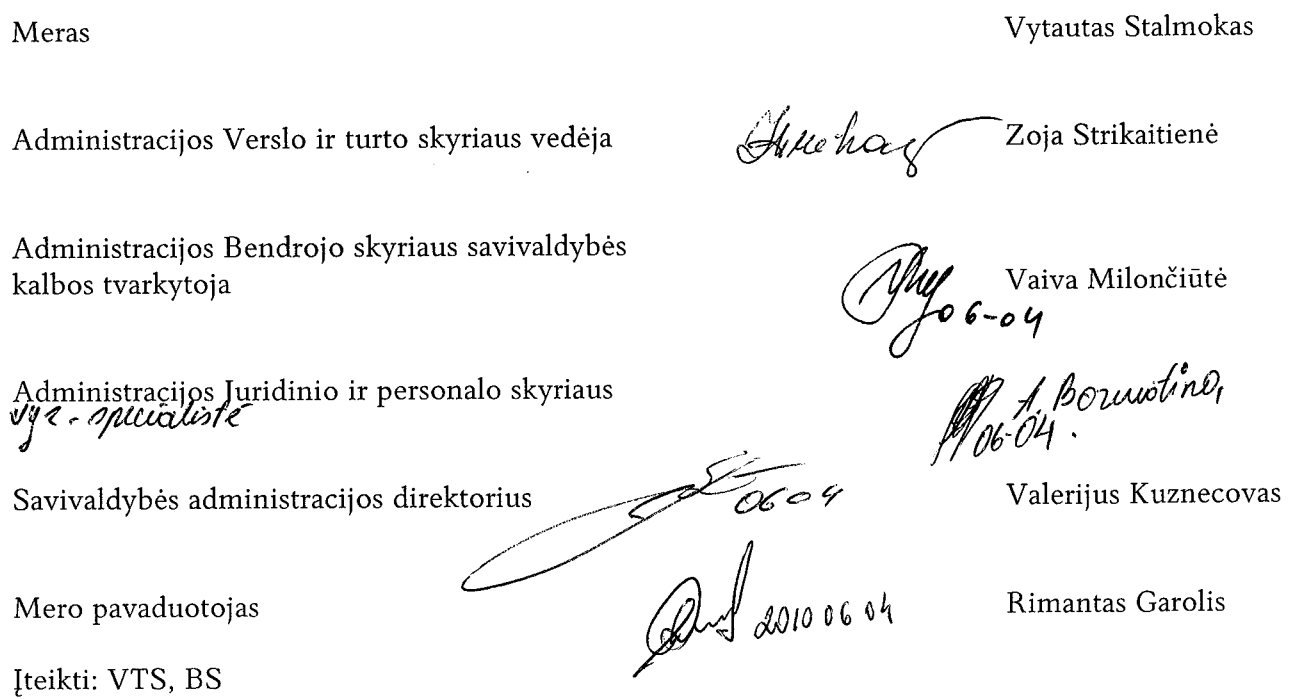 Meras Vytautas Stalmokas
Administracijos Verslo ir turto skyriaus vedėja Zoja Strikaitienė
Administracijos Bendrojo skyriaus savivaldybės
kalbos tvarkytoja Vaiva Milončiūtė
06-04
Administracijos Juridinio ir personalo skyriaus
vyr. specialistė A.
06-04.
Savivaldybės administracijos direktorius 06 04 Valerijus Kuznecovas
Mero pavaduotojas 2010 06 04 Rimantas Garolis
Įteikti: VTS, BS